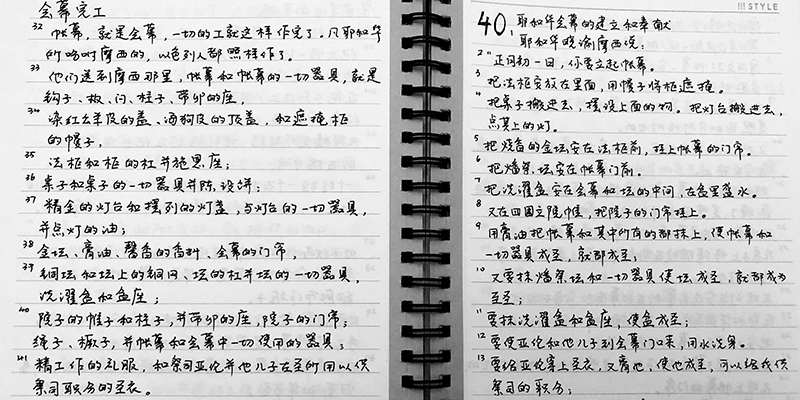 会幕完工
32 帐幕，就是会幕，一切的工就这样作完了。凡耶和华
所吩咐摩西的，以色列人都照样作了。
33 他们送到摩西那里，帐幕和帐幕的一切器具，就是
钩子、板、闩、柱子、带卯的座，
34 染红公羊皮的盖、海狗皮的顶盖，和遮掩柜
的幔子，
35 法柜和柜的杠并施恩座；
36 桌子和桌子的一切器具并陈设饼；
37 精金的灯台和摆列的灯盏，与灯台的一切器具，
并点灯的油；
38 金坛、膏油、馨香的香料、会幕的门帘，
39 铜坛和坛上的铜网、坛的杠并坛的一切器具，
洗濯盆和盆座；
40 院子的帷子和柱子，并带卯的座，院子的门帘；
绳子、橛子，并帐幕和会幕中一切使用的器具；
41 精工作的礼服，和祭司亚伦并他儿子在圣所用以供
祭司职分的圣衣。
STYLE
40. 耶和华会幕的建立和奉献
耶和华晓谕摩西说：
2 "正月初一日，你要立起帐幕。
3 把法柜安放在里面，用幔子将柜遮掩。
4 把桌子搬进去，摆设上面的物。把灯台搬进去，
点其上的灯。
5 把烧香的金坛安在法柜前，挂上帐幕的门帘。
6 把燔祭坛安在帐幕门前。
7 把洗濯盆安在会幕和坛的中间，在盆里盛水。
8 又在四围立院帷，把院子的门帘挂上。
9 用膏油把帐幕和其中所有的都抹上，使帐幕和
一切器具成圣，就都成圣。
10 又要抹燔祭坛和一切器具使坛成圣，就都成为
至圣；
11 要抹洗濯盆和盆座，使盆成圣；
12 要使亚伦和他儿子到会幕门口来，用水洗身。
13 要给亚伦穿上圣衣，又膏他，使他成圣，可以给我供
祭司的职分；